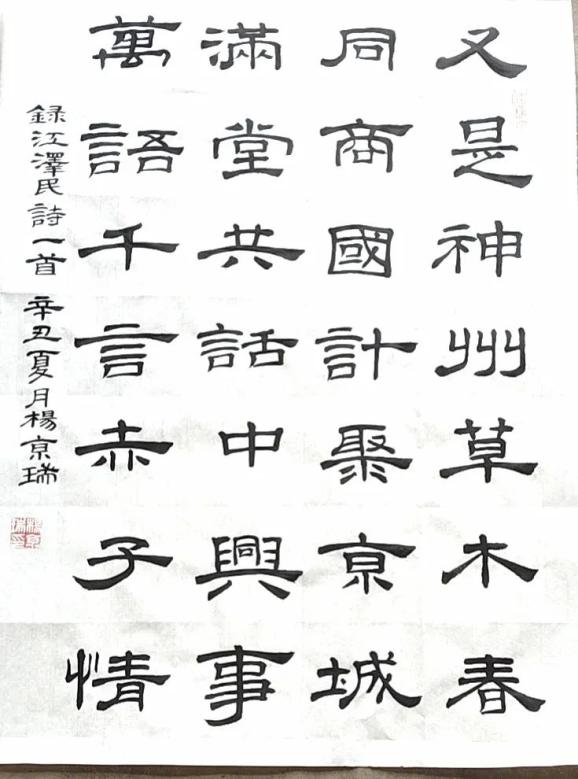 又是神州草木春
同商國計聚京城
滿堂共話中興事
萬語千言赤子情
録江澤民詩一首 辛丑夏月楊京瑞